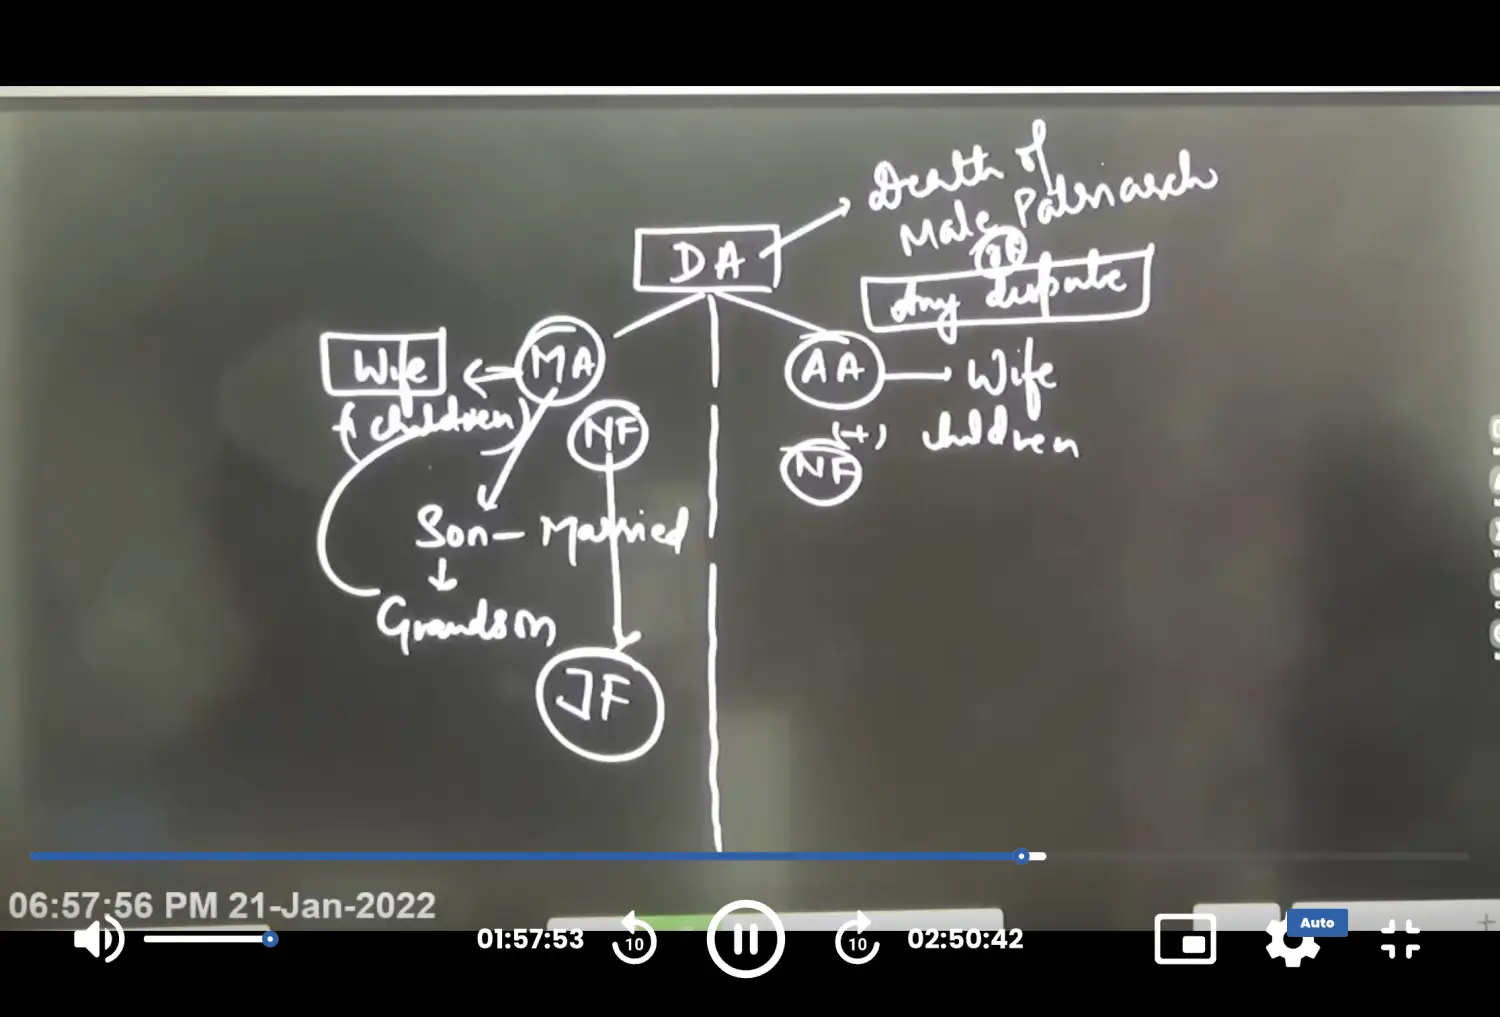 Death of
Male Patriarch
DA
or
Any dispute
Wife
MA
AA
Wife
(children)
NF
(+) children
NF
Son - Married
Grandson
JF
06:57:56 PM 21-Jan-2022
01:57:53
10
10
02:50:42
Auto